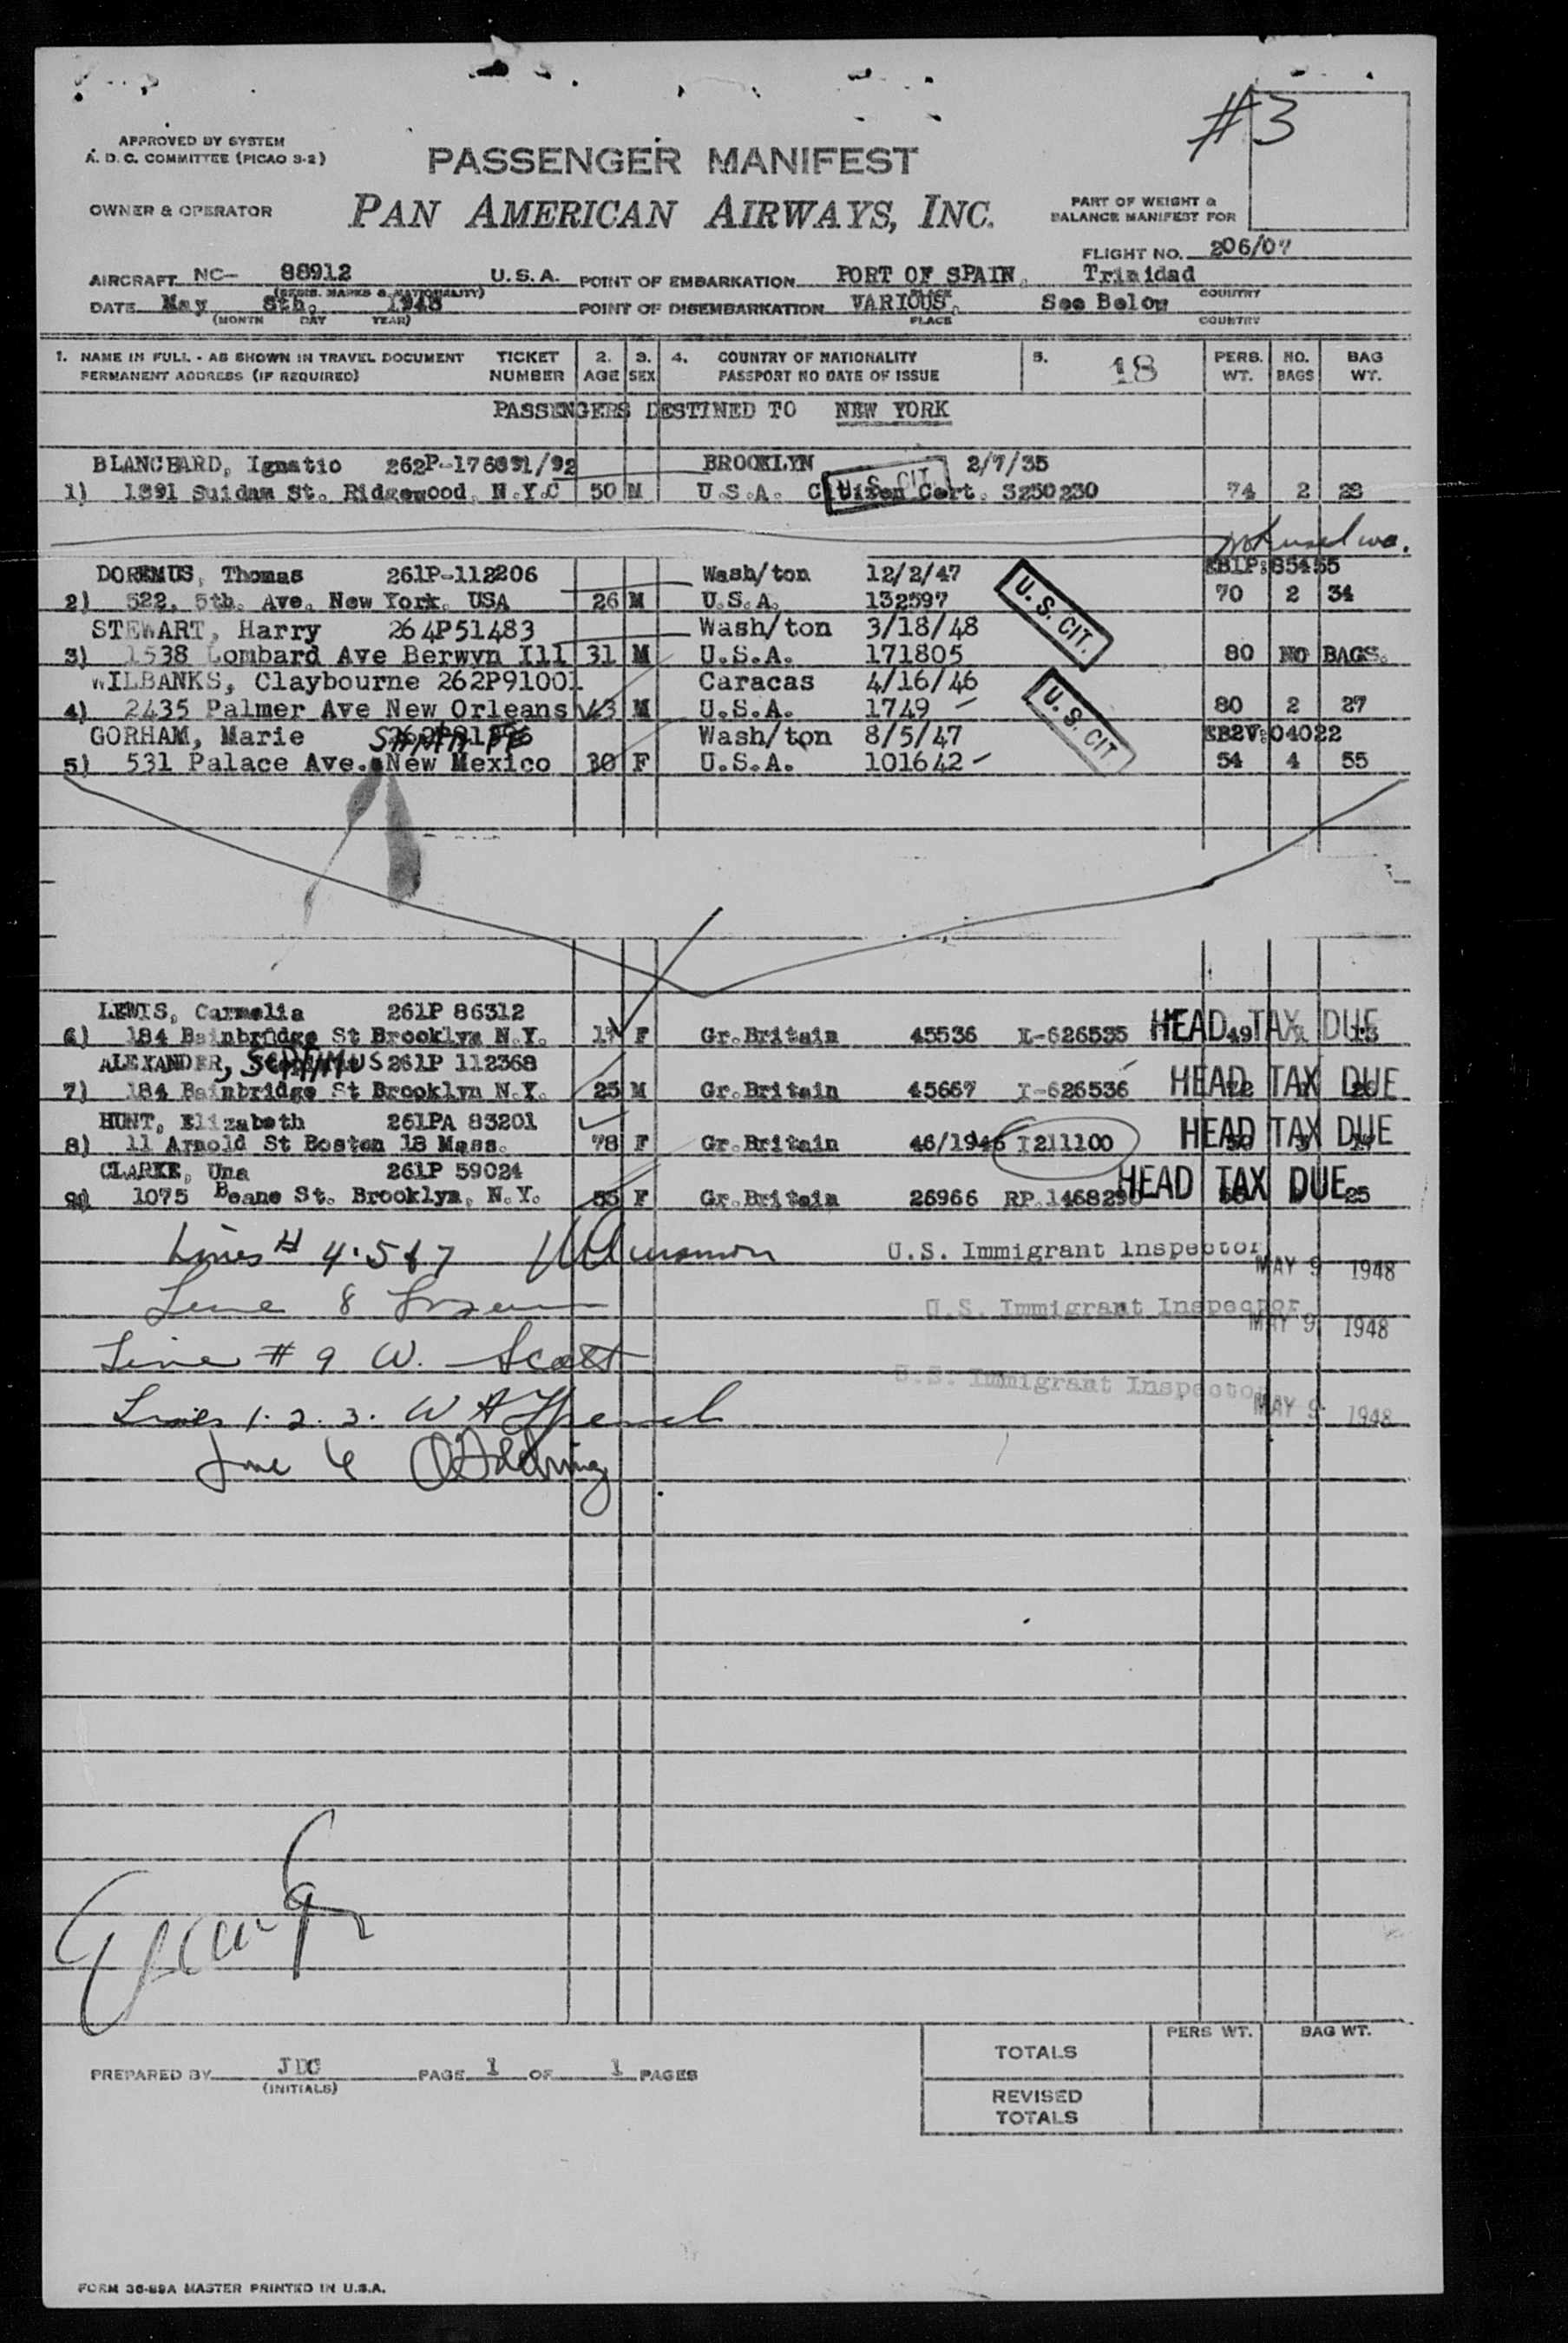 #3
APPROVED BY SYSTEM
A. D. C. COMMITTEE (PICAO 3-2)
PASSENGER MANIFEST
OWNER & OPERATOR
PAN AMERICAN AIRWAYS, INC.
PART OF WEIGHT &
BALANCE MANIFEST FOR
FLIGHT NO. 206/07
AIRCRAFT NC- 88912 U.S.A. POINT OF EMBARKATION PORT OF SPAIN, Trinidad
(REGIS. MARKS & NATIONALITY) PLACE COUNTRY
DATE May 8th, 1948 POINT OF DISEMBARKATION VARIOUS, See Below
(MONTH DAY YEAR) PLACE COUNTRY
1. NAME IN FULL - AS SHOWN IN TRAVEL DOCUMENT TICKET 2. 3. 4. COUNTRY OF NATIONALITY 5. 18 PERS. NO. BAG
PERMANENT ADDRESS (IF REQUIRED) NUMBER AGE SEX PASSPORT NO DATE OF ISSUE WT. BAGS WT.
PASSENGERS DESTINED TO NEW YORK
BLANCHARD, Ignatio 262P-176891/92 BROOKLYN 2/7/35
1) 1891 Suidam St. Ridgewood, N.Y.C 50 M U.S.A. Citizen Cert. 3250230 74 2 28
U.S. CIT.
DOREMUS, Thomas 261P-112206 Wash/ton 12/2/47 EB1P:85455
2) 522, 5th. Ave. New York, USA 26 M U.S.A. 132597 70 2 34
U.S. CIT.
STEWART, Harry 264P51483 Wash/ton 3/18/48
3) 1538 Lombard Ave Berwyn Ill 31 M U.S.A. 171805 80 NO BAGS.
WILBANKS, Claybourne 262P91001 Caracas 4/16/46
4) 2435 Palmer Ave New Orleans 43 M U.S.A. 1749 80 2 27
U.S. CIT.
GORHAM, Marie SANTA FE Wash/ton 8/5/47 EB2V:04022
5) 531 Palace Ave. New Mexico 30 F U.S.A. 101642 54 4 55
LEWIS, Carmelia 261P 86312
6) 184 Bainbridge St Brooklyn N.Y. 17 F Gr.Britain 45536 I-626535 49 13
HEAD TAX DUE
ALEXANDER, 261P 112368
7) 184 Bainbridge St Brooklyn N.Y. 25 M Gr.Britain 45667 I-626536
HEAD TAX DUE
HUNT, Elizabeth 261PA 83201
8) 11 Arnold St Boston 18 Mass. 78 F Gr.Britain 46/1946 I211100
HEAD TAX DUE
CLARKE, Una 261P 59024
9) 1075 Deane St. Brooklyn, N.Y. 55 F Gr.Britain 26966 RP.146829 25
HEAD TAX DUE
Lines # 4.5&7 U.S. Immigrant Inspector MAY 9 1948
Line 8 U.S. Immigrant Inspector MAY 9 1948
Line # 9 W. Scott U.S. Immigrant Inspector MAY 9 1948
Lines 1.2.3. W A
Line 6
PREPARED BY JDC PAGE 1 OF 1 PAGES
(INITIALS)
PERS WT. BAG WT.
TOTALS
REVISED
TOTALS
FORM 36-89A MASTER PRINTED IN U.S.A.